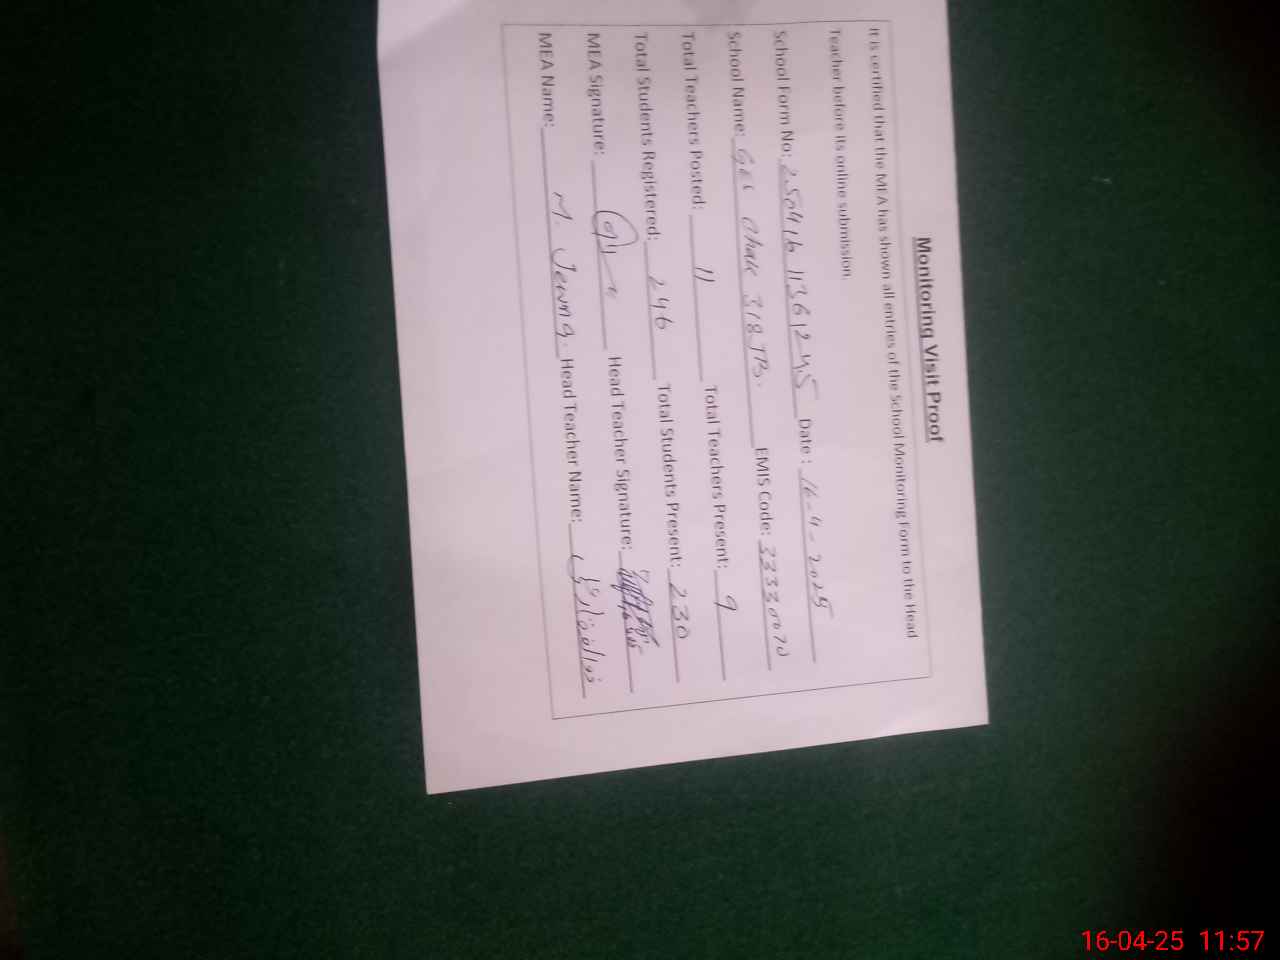 Monitoring Visit Proof
It is certified that the MEA has shown all entries of the School Monitoring Form to the Head
Teacher before its online submission.
School Form No: 25041611361245 Date : 16-4-2025
School Name: GES Chak 318 JB. EMIS Code: 33330070
Total Teachers Posted: 11 Total Teachers Present: 9
Total Students Registered: 246 Total Students Present: 230
MEA Signature: Head Teacher Signature:
MEA Name: M. Head Teacher Name: ذوالفقار علی
16-04-25 11:57